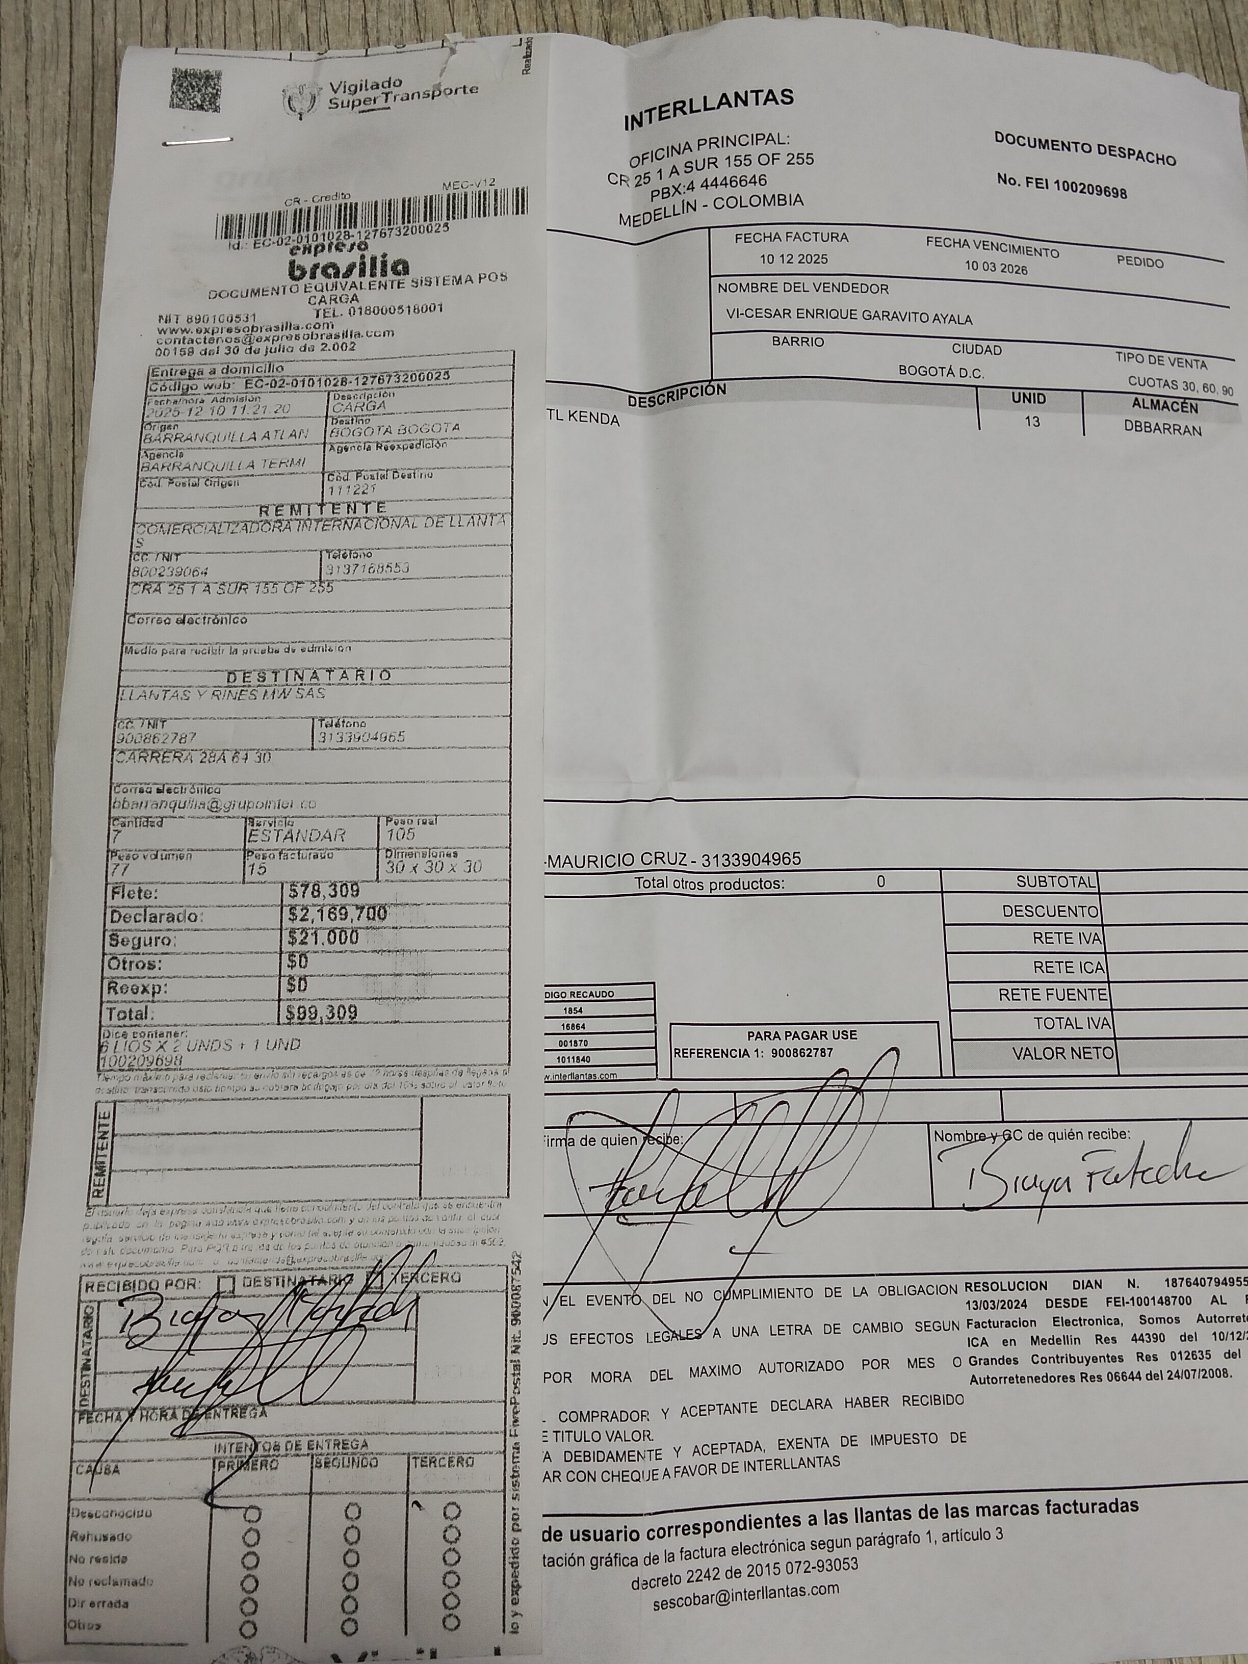 Vigilado
SuperTransporte
CR - Credito
MEC-V12
Id.: EC-02-0101028-127673200025
expreso
brasilia
DOCUMENTO EQUIVALENTE SISTEMA POS
CARGA
NIT 890100531
TEL. 018000518001
www.expresobrasilia.com
contactenos@expresobrasilia.com
00159 del 30 de julio de 2.002
Entrega a domicilio
Código web: EC-02-0101028-127673200025
Fecha/hora Admisión
Descripción
2025-12-10 11:21:20
CARGA
Origen
Destino
BARRANQUILLA ATLAN
BOGOTA BOGOTA
Agencia
Agencia Reexpedición
BARRANQUILLA TERMI
Cód. Postal Origen
Cód. Postal Destino
111221
REMITENTE
COMERCIALIZADORA INTERNACIONAL DE LLANTA
S
CC. / NIT
Teléfono
800239064
3137168553
CRA 25 1 A SUR 155 OF 255
Correo electrónico
Medio para recibir la prueba de admisión
DESTINATARIO
LLANTAS Y RINES MW SAS
CC. / NIT
Teléfono
900862787
3133904965
CARRERA 28A 64 30
Correo electrónico
bbarranquilla@grupointel.co
Cantidad
Servicio
Peso real
7
ESTANDAR
105
Peso volumen
Peso facturado
Dimensiones
77
15
30 x 30 x 30
Flete: $78,309
Declarado: $2,169,700
Seguro: $21,000
Otros: $0
Reexp: $0
Total: $99,309
Dice contener:
6 LIOS X 2 UNDS + 1 UND
100209698
REMITENTE
RECIBIDO POR: DESTINATARIO TERCERO
DESTINATARIO
FECHA Y HORA DE ENTREGA
INTENTOS DE ENTREGA
CAUSA PRIMERO SEGUNDO TERCERO
Desconocido
Rehusado
No reside
No reclamado
Dir errada
Otros
lo y expedido por sistema FivePostal Nit. 900087542
Realizado
INTERLLANTAS
OFICINA PRINCIPAL:
CR 25 1 A SUR 155 OF 255
PBX:4 4446646
MEDELLÍN - COLOMBIA
DOCUMENTO DESPACHO
No. FEI 100209698
FECHA FACTURA
FECHA VENCIMIENTO
PEDIDO
10 12 2025
10 03 2026
NOMBRE DEL VENDEDOR
VI-CESAR ENRIQUE GARAVITO AYALA
BARRIO
CIUDAD
TIPO DE VENTA
BOGOTÁ D.C.
CUOTAS 30, 60, 90
DESCRIPCIÓN
UNID
ALMACÉN
TL KENDA
13
DBBARRAN
-MAURICIO CRUZ - 3133904965
Total otros productos: 0
SUBTOTAL
DESCUENTO
RETE IVA
RETE ICA
RETE FUENTE
TOTAL IVA
VALOR NETO
DIGO RECAUDO
1854
16864
001870
1011840
w.interllantas.com
PARA PAGAR USE
REFERENCIA 1: 900862787
irma de quien recibe:
Nombre y CC de quién recibe:
N EL EVENTO DEL NO CUMPLIMIENTO DE LA OBLIGACION
US EFECTOS LEGALES A UNA LETRA DE CAMBIO SEGUN
POR MORA DEL MAXIMO AUTORIZADO POR MES O
L COMPRADOR Y ACEPTANTE DECLARA HABER RECIBIDO
E TITULO VALOR.
A DEBIDAMENTE Y ACEPTADA, EXENTA DE IMPUESTO DE
AR CON CHEQUE A FAVOR DE INTERLLANTAS
RESOLUCION DIAN N. 187640794955
13/03/2024 DESDE FEI-100148700 AL
Facturacion Electronica, Somos Autorrete
ICA en Medellin Res 44390 del 10/12/2
Grandes Contribuyentes Res 012635 del
Autorretenedores Res 06644 del 24/07/2008.
de usuario correspondientes a las llantas de las marcas facturadas
tación gráfica de la factura electrónica segun parágrafo 1, artículo 3
decreto 2242 de 2015 072-93053
sescobar@interllantas.com